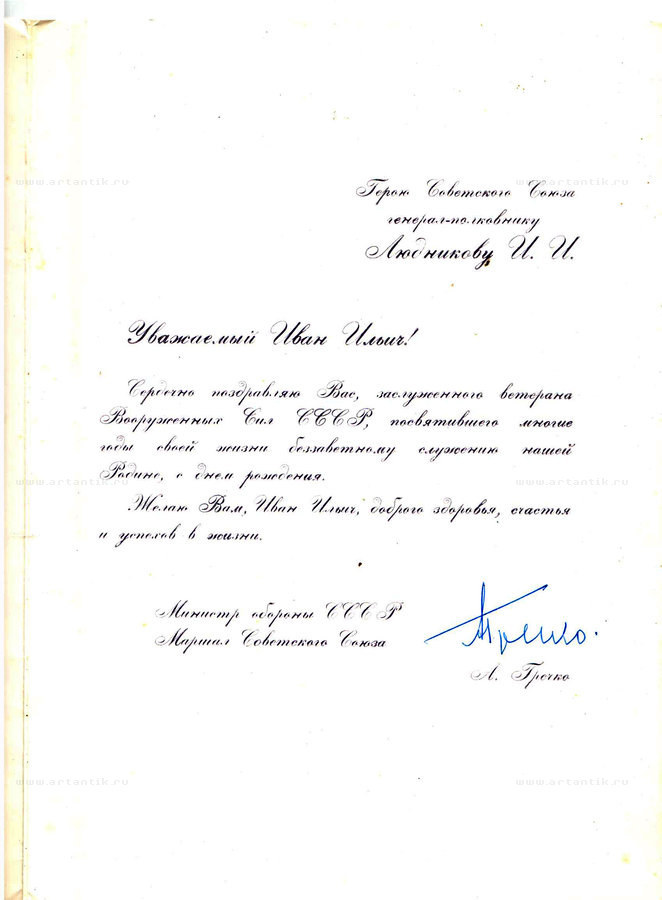 Герою Советского Союза
генерал-полковнику
Людникову И. И.
Уважаемый Иван Ильич!
Сердечно поздравляю Вас, заслуженного ветерана
Вооруженных Сил СССР, посвятившего многие
годы своей жизни беззаветному служению нашей
Родине, с днем рождения.
Желаю Вам, Иван Ильич, доброго здоровья, счастья
и успехов в жизни.
Министр обороны СССР
Маршал Советского Союза
АГречко.
А. Гречко
www.artantik.ru
www.artantik.ru
www.artantik.ru
www.artantik.ru
www.artantik.ru
www.artantik.ru